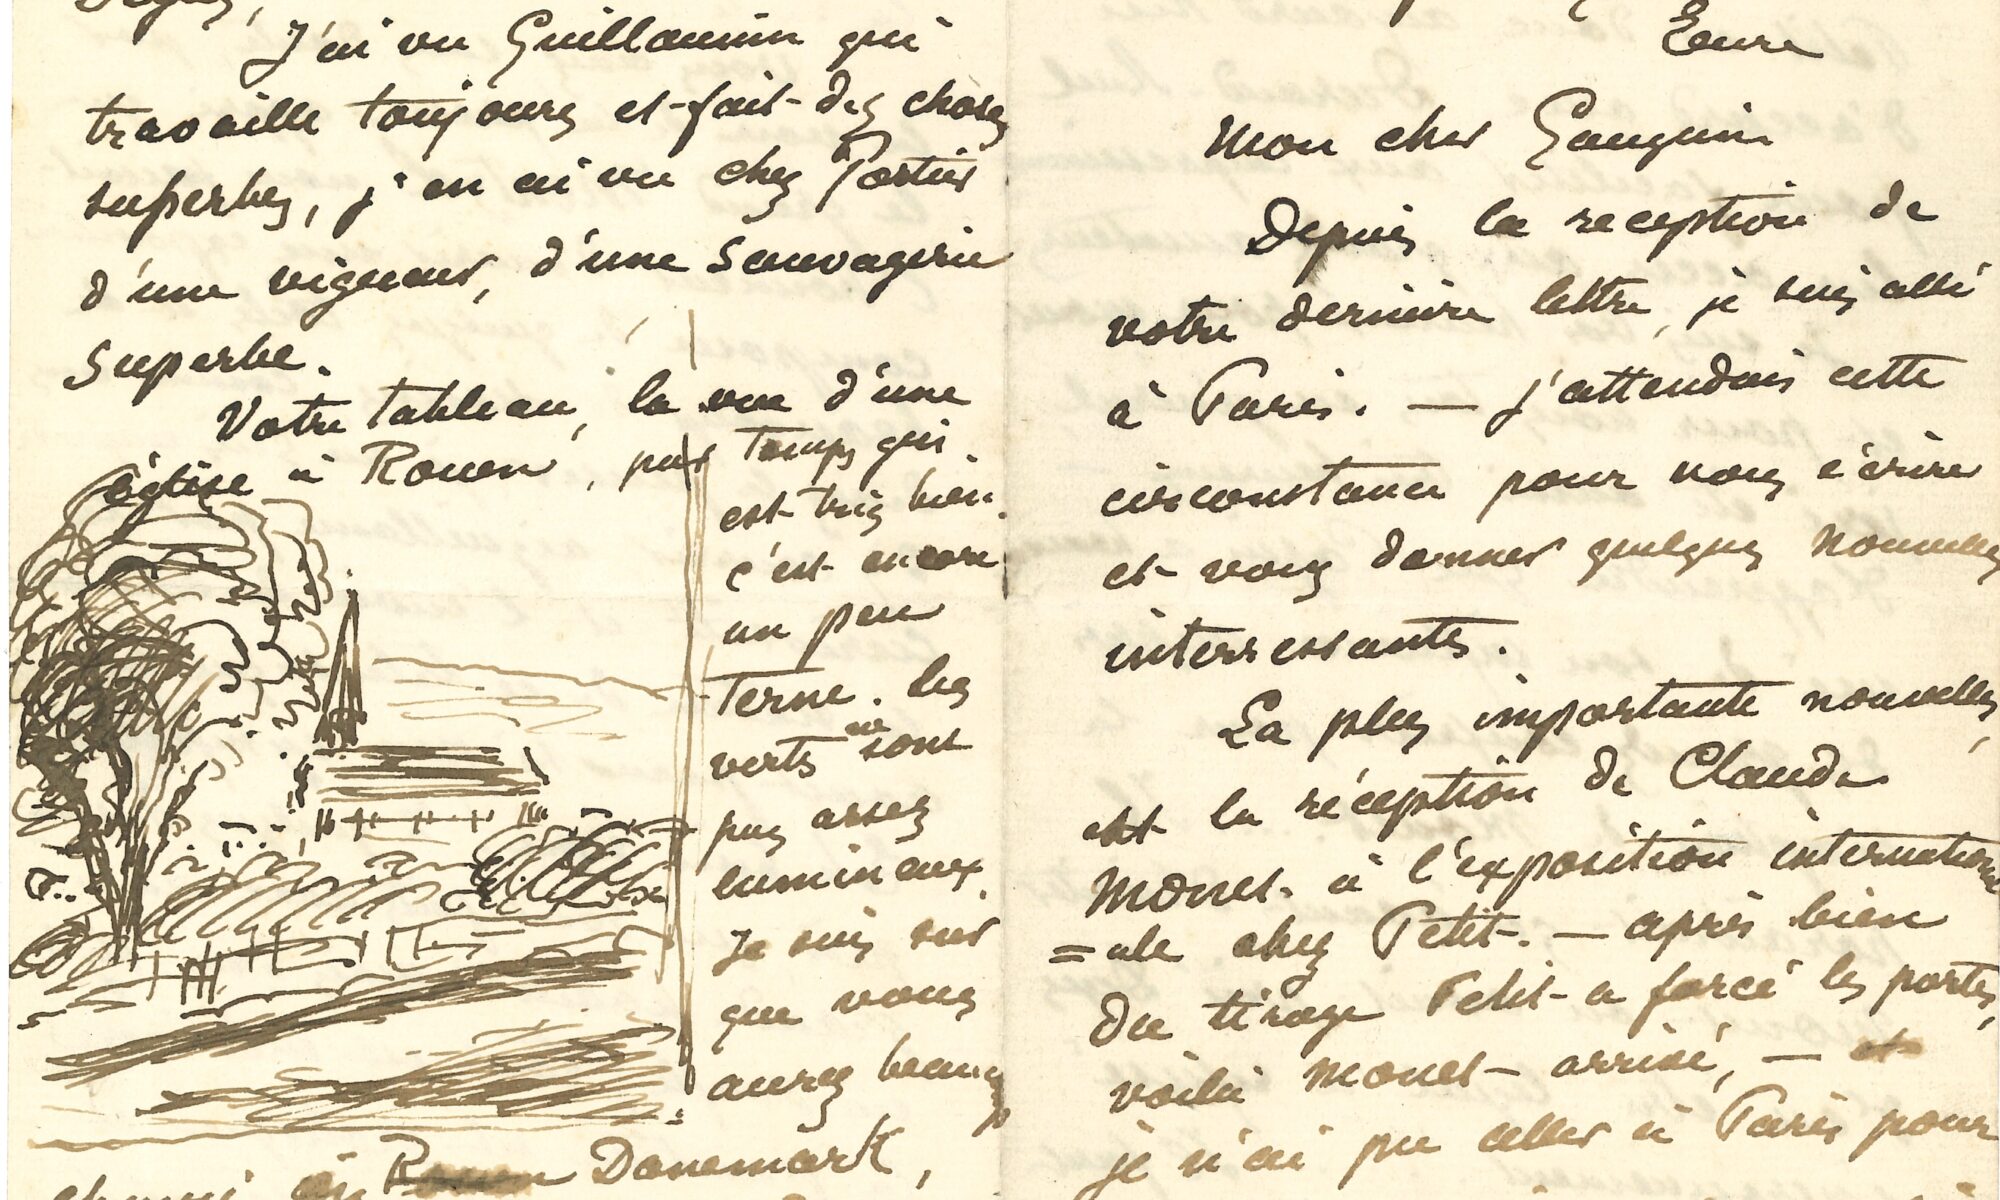 J'ai vu Guillaumin qui
travaille toujours et fait des choses
superbes, j'en ai vu chez Portier
d'une vigueur, d'une sauvagerie
superbe.
Votre tableau, la vue d'une
église à Rouen, par temps gris
est très bien,
c'est encore
un peu
terne. les
verts ne sont
pas assez
lumineux
Je suis sûr
que vous
aurez beaucoup
Danemark,
Eure
Mon cher Gauguin
Depuis la reception de
votre dernière lettre, je suis allé
à Paris. — j'attendais cette
circonstance pour vous écrire
et vous donner quelques nouvelles
interressants.
La plus importante nouvelle,
est la réception de Claude
Monet à l'exposition internation
=ale chez Petit. — après bien
du tirage Petit a forcé les portes,
voilà Monet arrivé, —
je n'ai pu aller à Paris pour